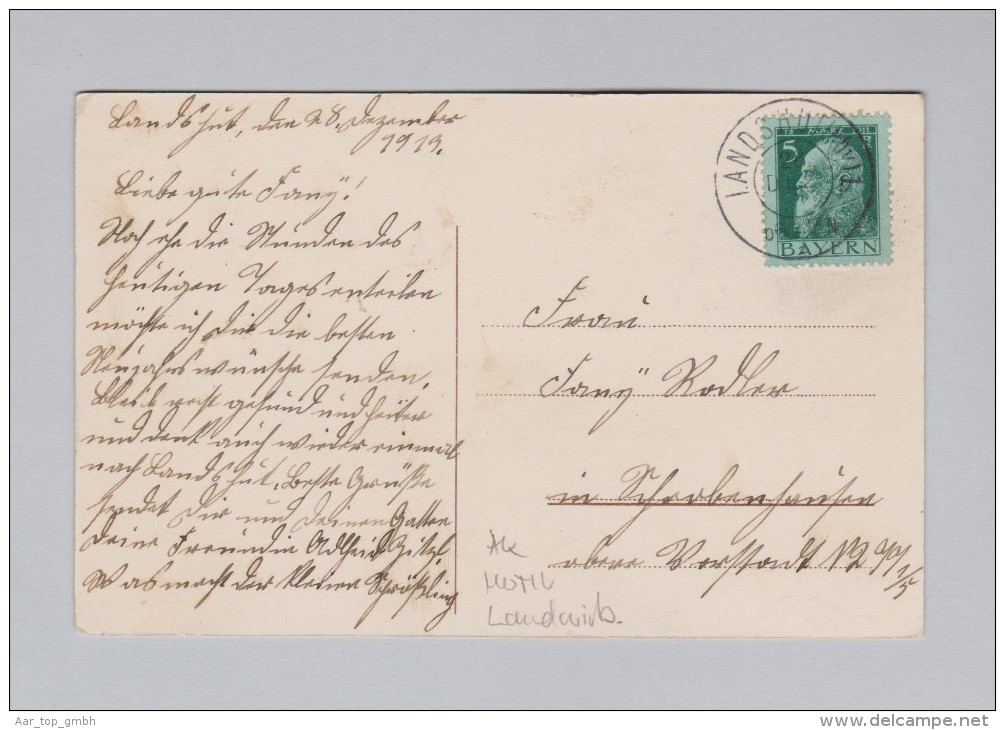 Landshut, den 28. Dezember
1913.
Liebe gute Fany!
Noch ehe die Stunden des
heutigen Tages enteilen
möchte ich Dir die besten
Neujahrswünsche senden.
Bleib recht gesund und heiter
und denk auch wieder einmal
nach Landshut. Beste Grüße
sendet Dir und Deinen Gatten
Deine Freundin
Was macht der kleine
LANDSHUT
5
BAYERN
Frau
Fany Rodler
in Schrobenhausen
obere Vorstadt
Motiv
Landwirts.
Aar_top_gmbh
www.delcampe.net